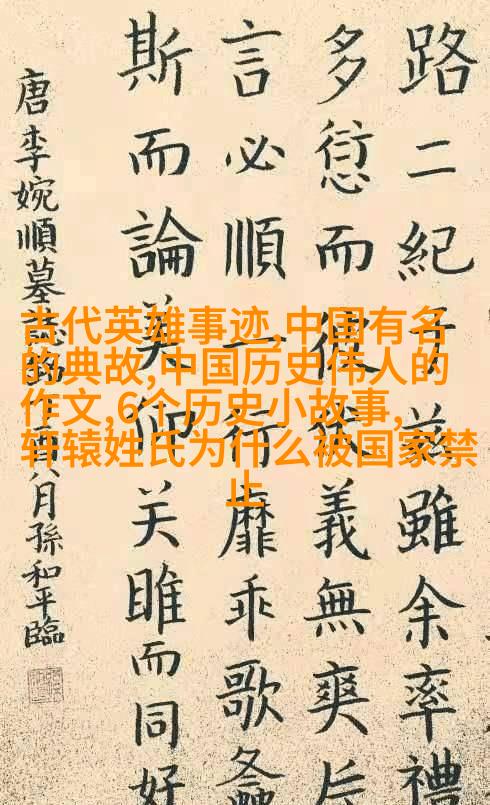 古代英雄事迹,中国有名
的典故,中国历史伟人的
作文,6个历史小故事,
轩辕姓氏为什么被国家禁
止
路二紀于茲雖余率禮
多愆而義無爽
言必順行靡乖歌螽
斯而論美仰关雎而同好
唐李婉順墓誌銘八月孫和平臨